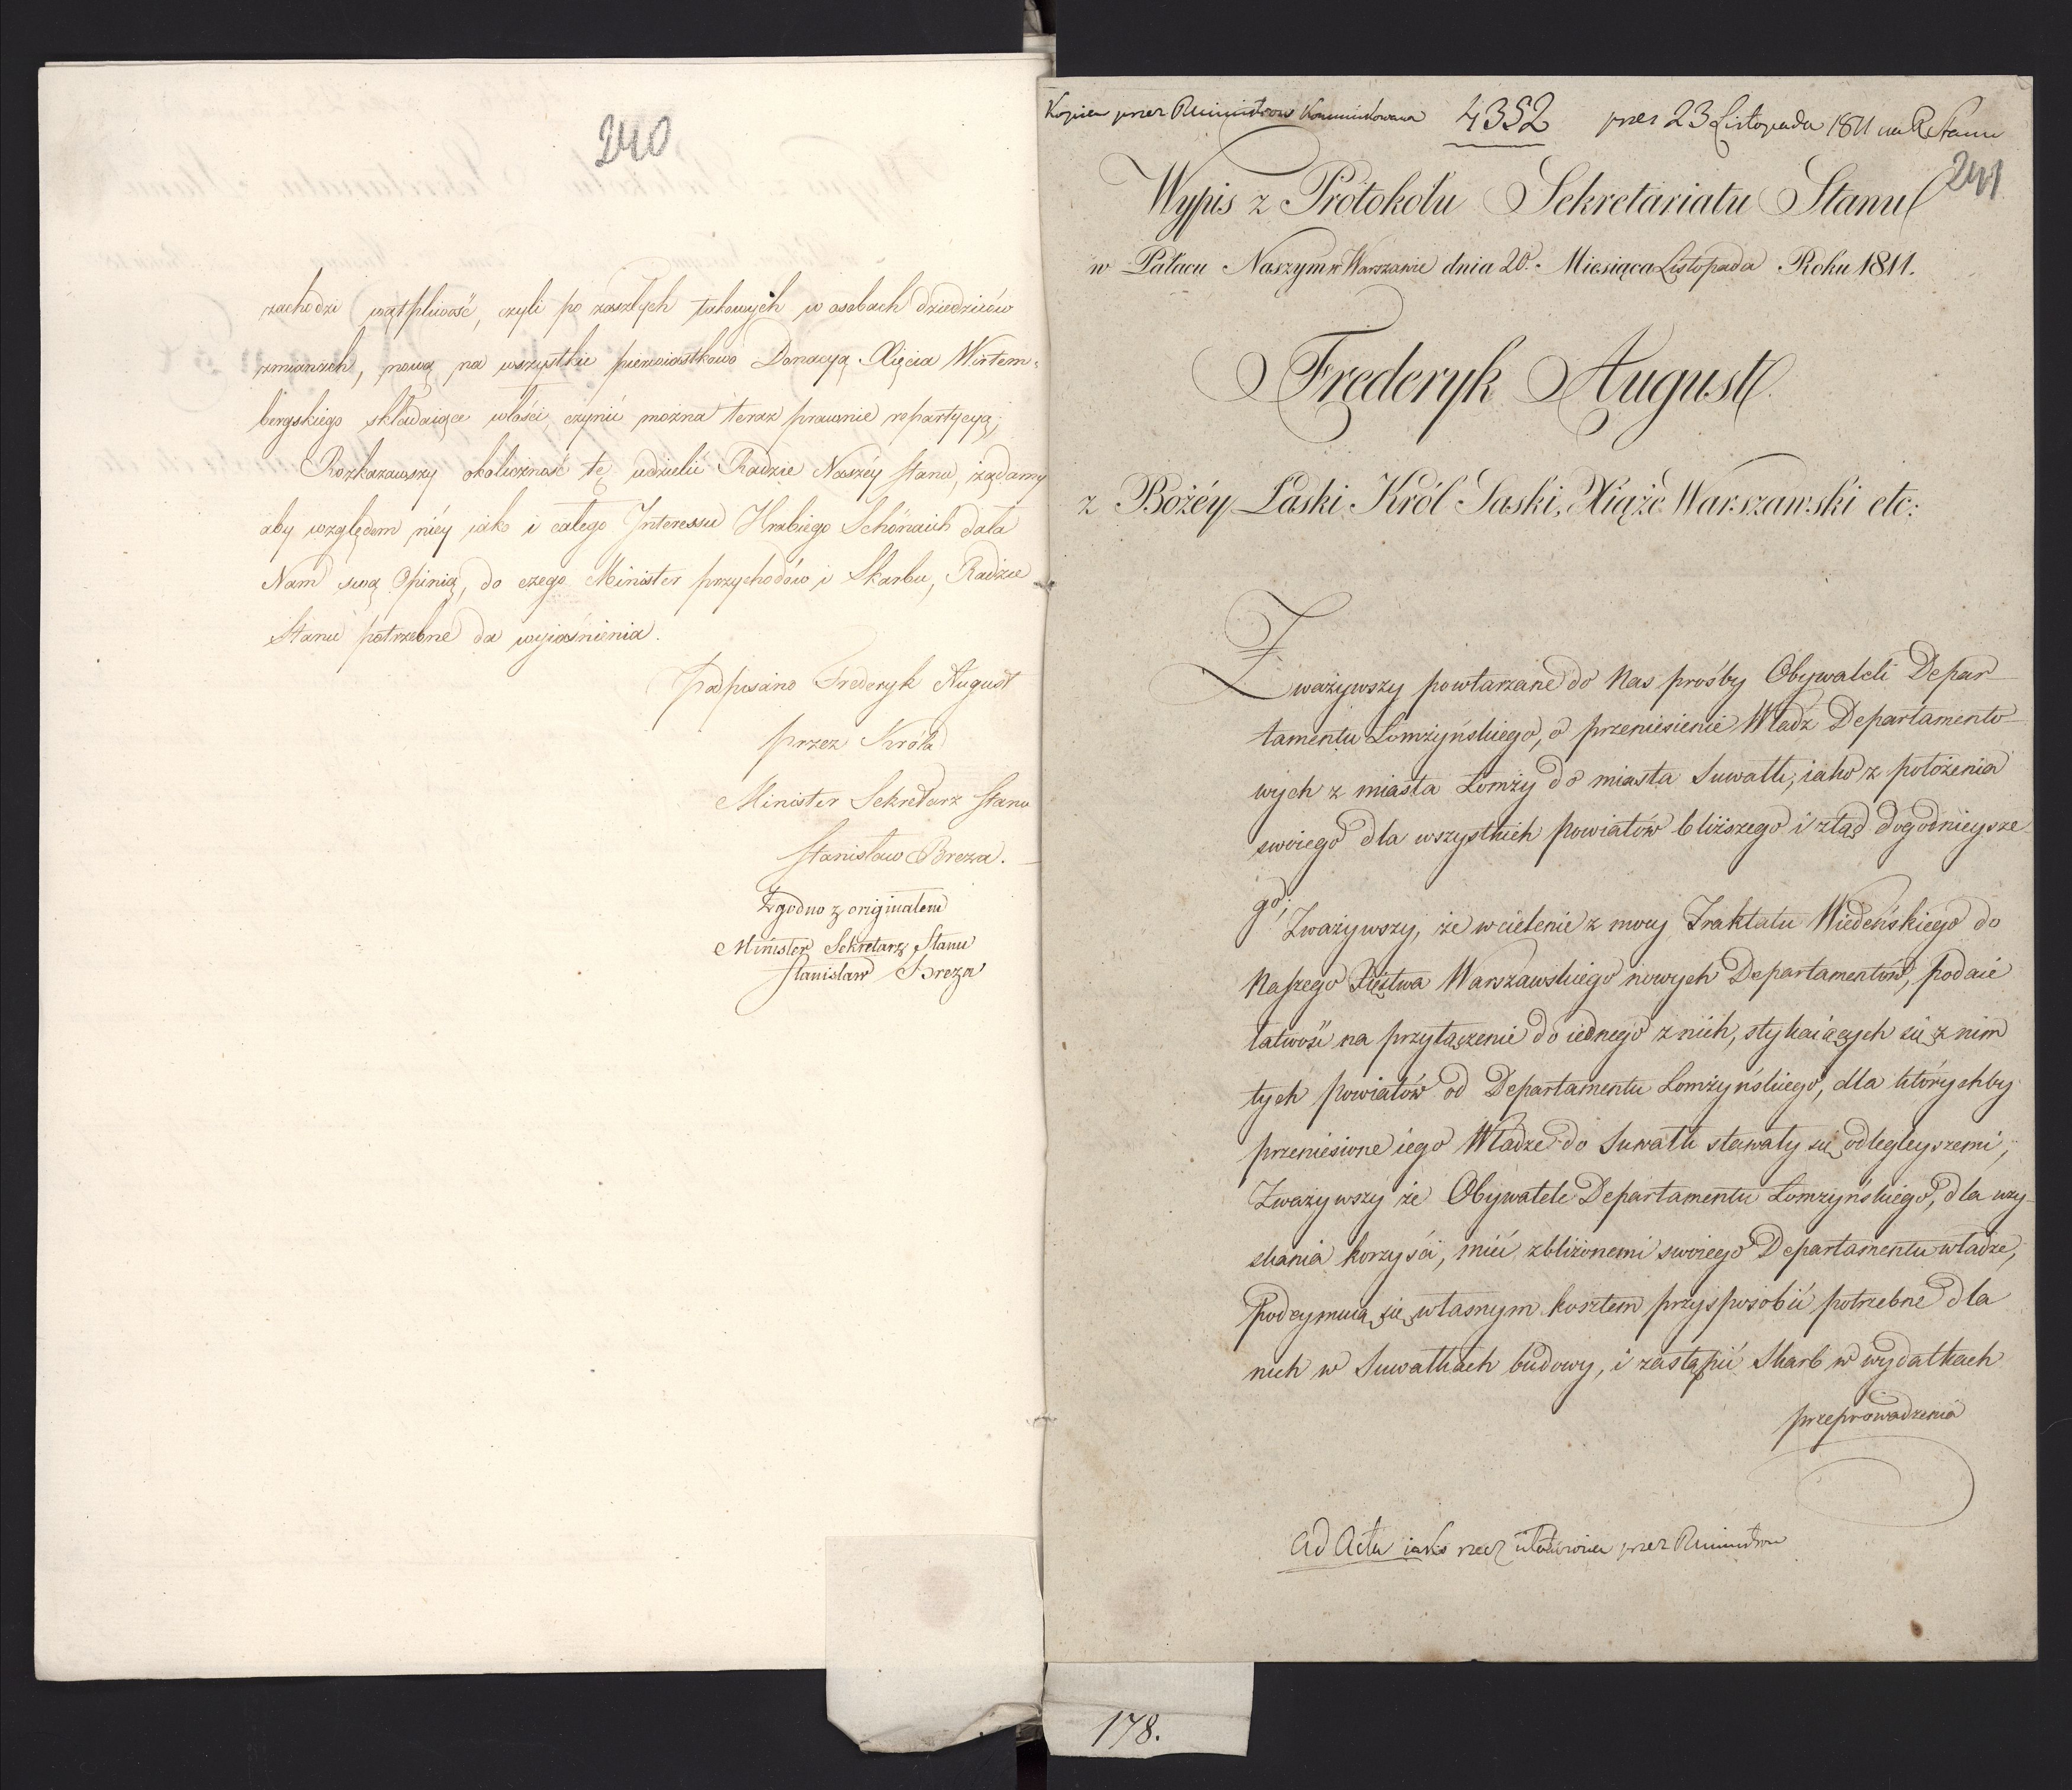 240
zachodzi wątpliwość, czyli po zaszłych takowych w osobach dziedziców
zmianach, nową na wszystkie pierwiastkowo Donacyą Xięcia Wirtem-
bergskiego składaiące włości, czynić można teraz prawnie repartycyą;
Rozkazawszy okoliczność tę udzielić Radzie Naszéy Stanu, żądamy
aby względem niéy iako i całego Interessu Hrabiego Schönaich dała
Nam swą Opinią, do czego Minister przychodów i Skarbu, Radzie
Stanu potrzebne da wyiaśnienia.
Podpisano Frederyk August
przez Króla
Minister Sekretarz Stanu
Stanisław Breza.
Zgodno z originałem
Minister Sekretarz Stanu
Stanisław Breza
Kopia przez RMinistrow Kommunikowana 4352 pres 23 Listopada 1811 na R Stanu
241
Wypis z Protokołu Sekretariatu Stanu
w Pałacu Naszym w Warszawie dnia 20. Miesiąca Listopada Roku 1811.
Frederyk August.
z Bożéy Łaski Król Saski, Xiąże Warszawski etc:
Zważywszy powtarzane do Nas prośby Obywateli Depar-
tamentu Łomżyńskiego, o przeniesienie Władz Departamento-
wych z miasta Łomży do miasta Suwałk, iako z położenia
swoiego dla wszystkich powiatów bliższego i ztąd dogodnieysze-
go;
Zważywszy, że wcielenie z mocy Traktatu Wiedeńskiego do
Naszego Xięstwa Warszawskiego nowych Departamentów, podaie
łatwość na przyłączenie do iednego z nich, stykaiących się z nim
tych powiatów od Departamentu Łomżyńskiego, dla którychby
przeniesione iego Władze do Suwałk stawały się odlegleyszemi;
Zważywszy że Obywatele Departamentu Łomżyńskiego, dla uzy-
skania korzyści, mieć zbliżonemi swoiego Departamentu władze,
Podeymuią się własnym kosztem przysposobić potrzebne dla
nich w Suwałkach budowy, i zastąpić Skarb w wydatkach
przeprowadzenia
Ad Acta iako rzecz ułatwiona przez RMinistrow
178.